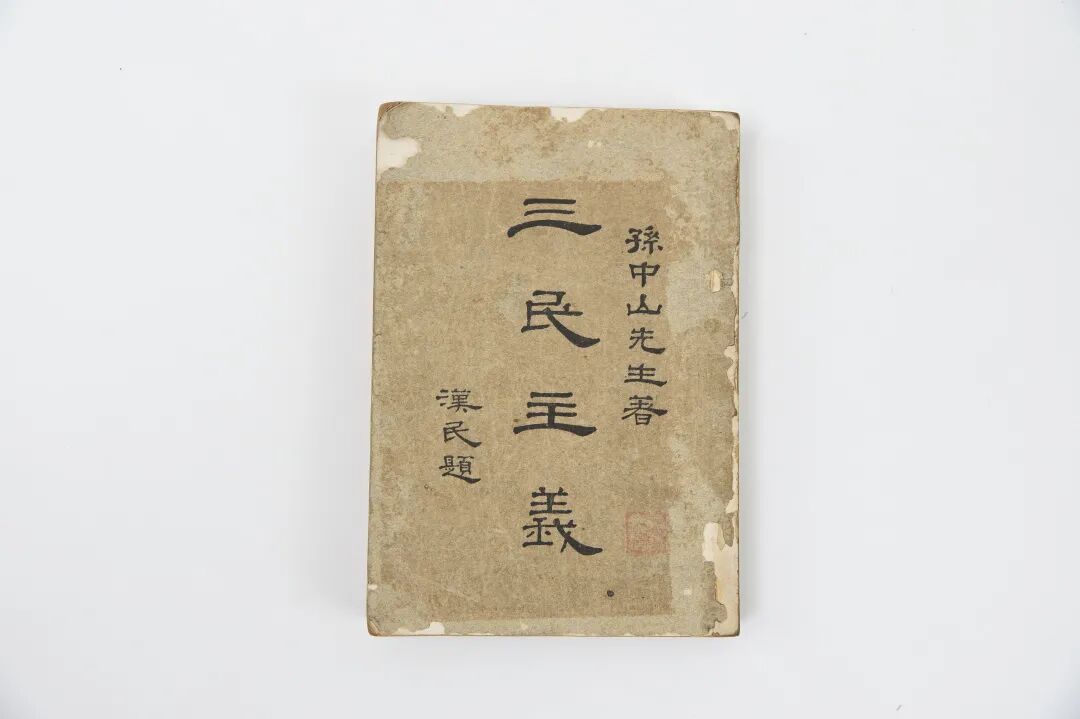 孫中山先生著
三民主義
漢民題